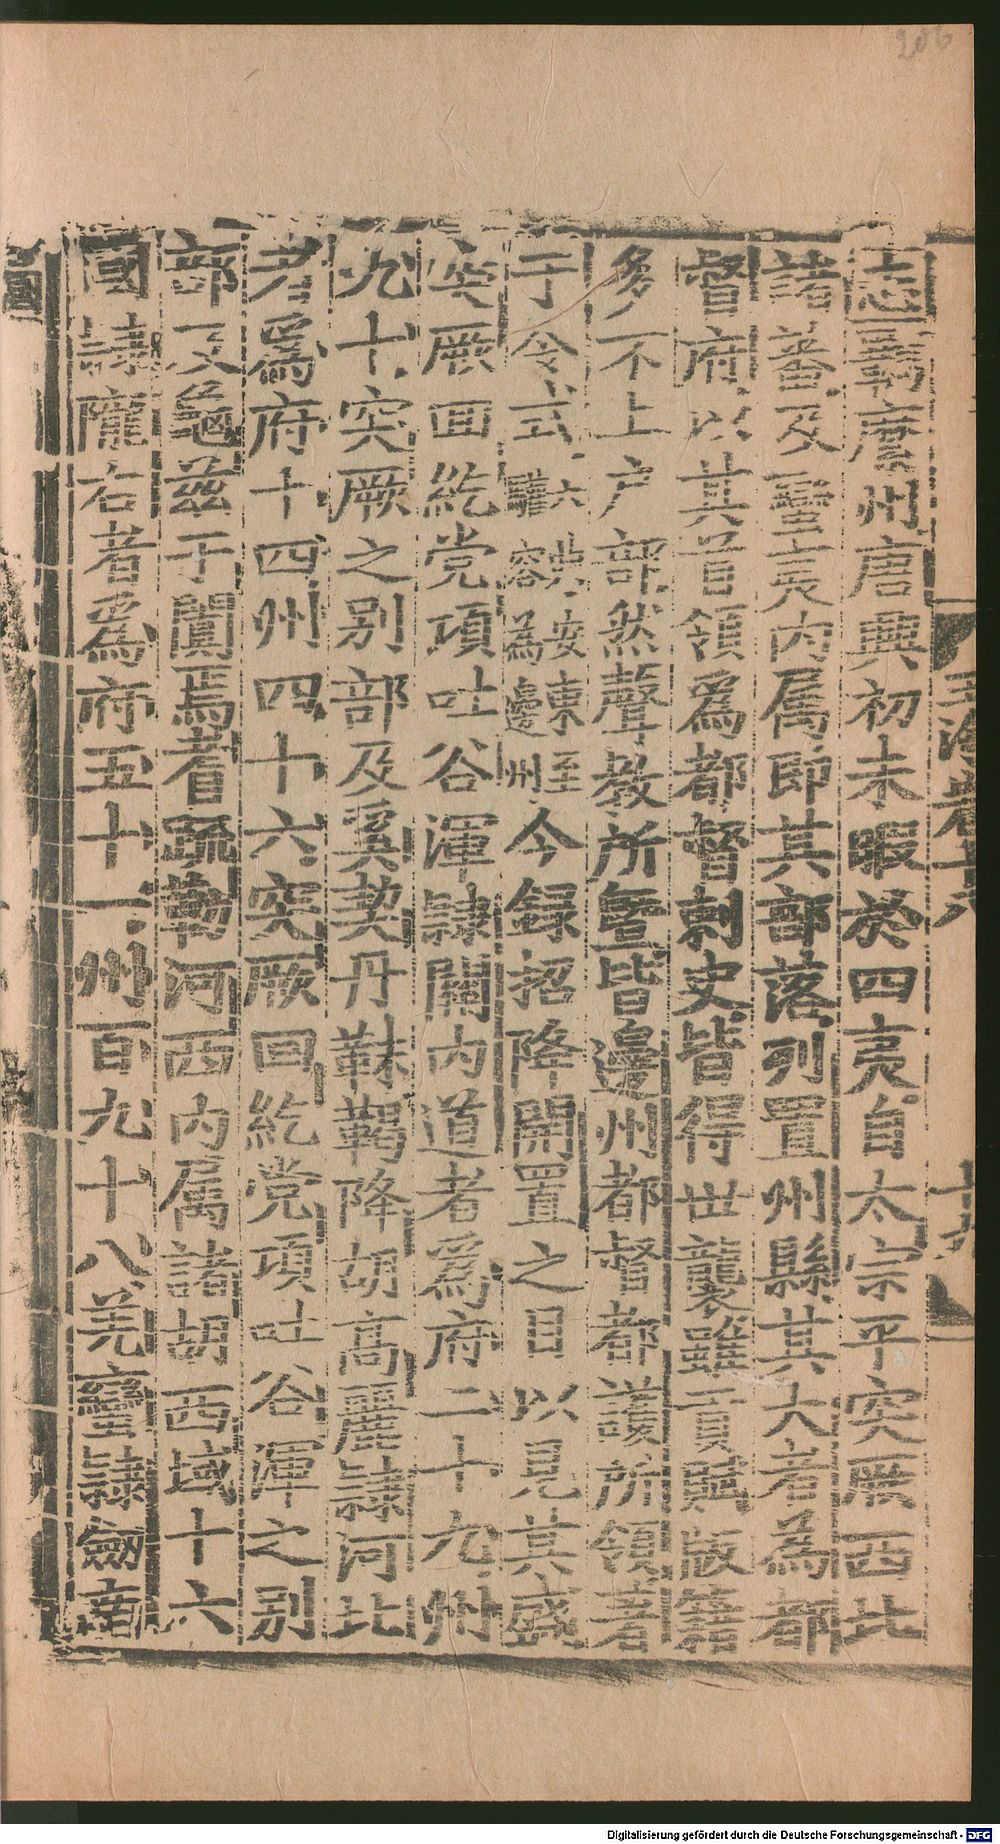 志羈縻州唐興初未暇於四夷自太宗平突厥西北
諸蕃及蠻夷内属即其部落列置州縣其大者爲都
督府以其首領爲都督刺史皆得世襲雖貢賦版籍
多不上户部然聲教所曁皆邊州都督都護所領著
于令式
六典安東至
羈容為邊州
今録招降開置之目以見其盛
突厥回紇党項吐谷渾隷關内道者爲府二十九州
九十突厥之别部及奚契丹靺鞨降胡高麗隷河北
者爲府十四州四十六突厥回紇党項吐谷渾之别
部及龜兹于闐焉耆踈勒河西内属諸胡西域十六
國隷隴右者爲府五十一州百九十八羌蠻隷劒南
玉海卷十八
206
Digitalisierung gefördert durch die Deutsche Forschungsgemeinschaft - DFG